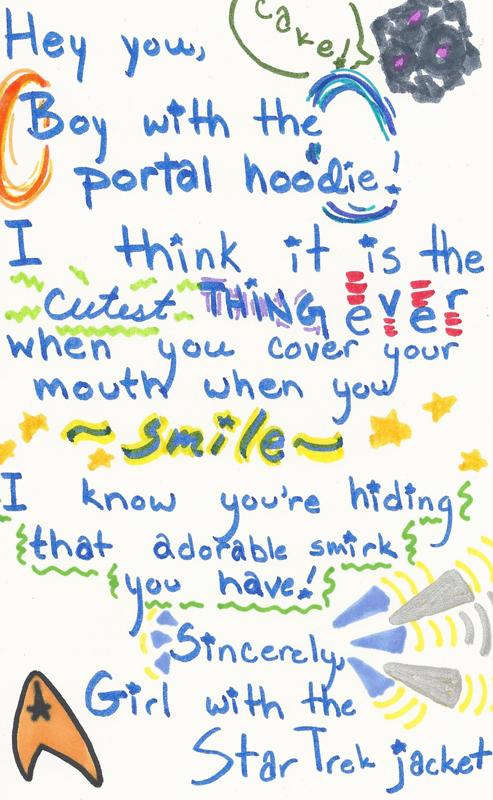 Cake!
Hey you,
Boy with the
portal hoodie!
I think it is the
cutest THiNG ever
when you cover your
mouth when you
~smile~
I know you're hiding
that adorable smirk
you have!
Sincerely,
Girl with the
Star Trek jacket